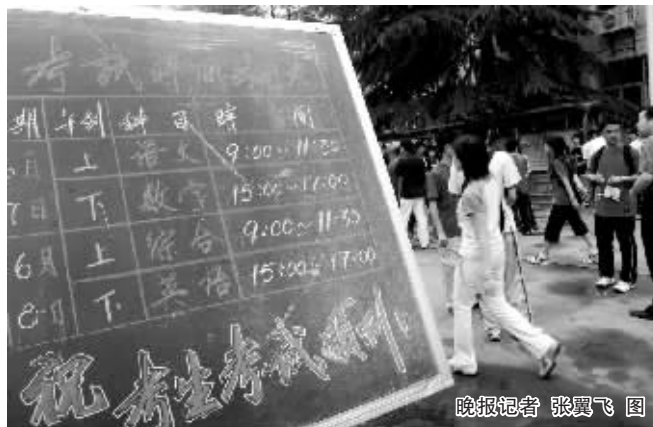 考试时间安排
期 午别 科目 时间
6月 上 语文 9:00~11:30
7日 下 数学 15:00~17:00
6月 上 综合 9:00~11:30
8日 下 英语 15:00~17:00
祝考生考试顺利
晚报记者 张翼飞 图